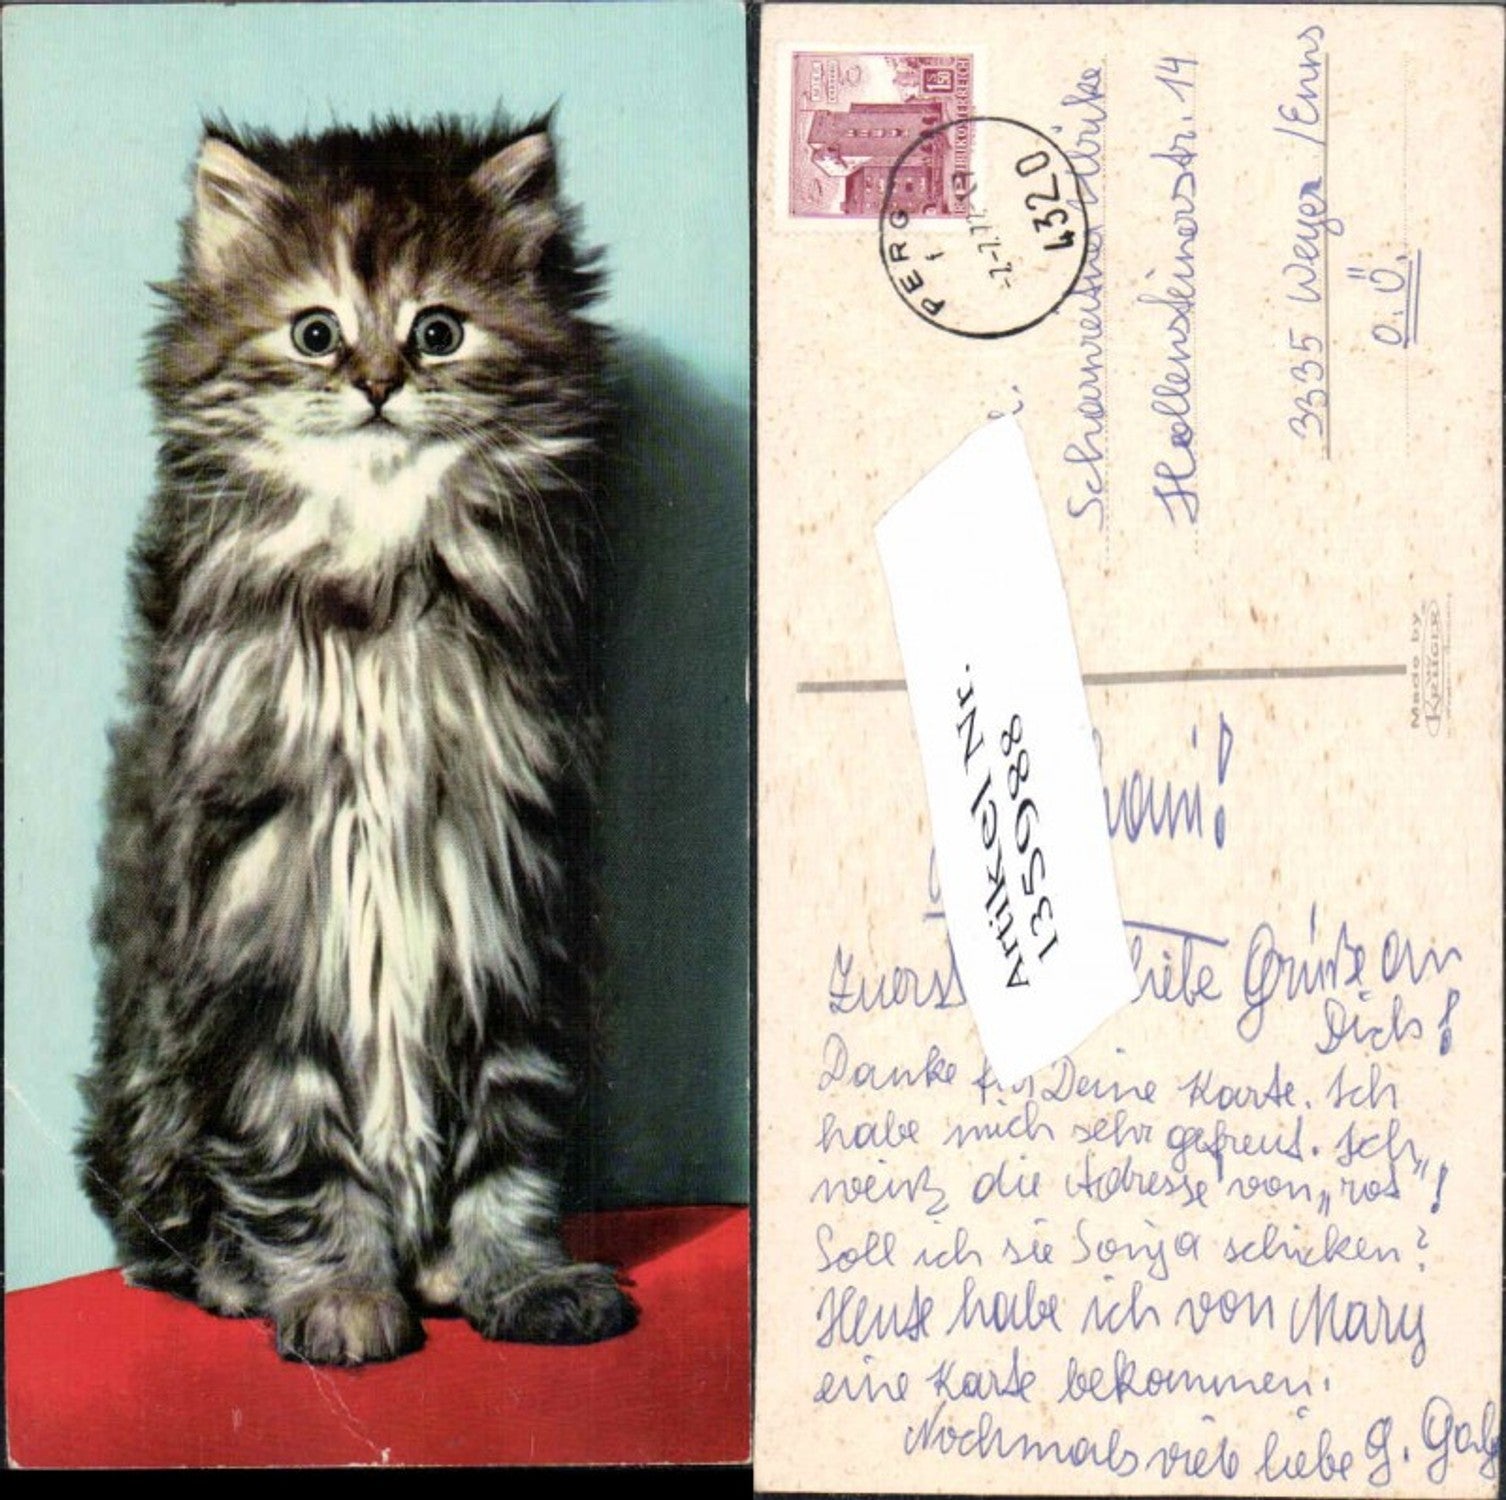 S 1.50
REPUBLIK ÖSTERREICH
PERG 1
-2.7.
4320
Ulrike
Hollensteinerstr. 14
3335 Weyer /Enns
O.Ö.
Made by
KRÜGER
Artikel Nr.
135988
Zuerst liebe Grüße an
Dich!
Danke für Deine Karte. Ich
habe mich sehr gefreut. Ich
weiß die Adresse von „rot"!
Soll ich sie Sonja schicken?
Heute habe ich von Mary
eine Karte bekommen.
Nochmals viele liebe G.